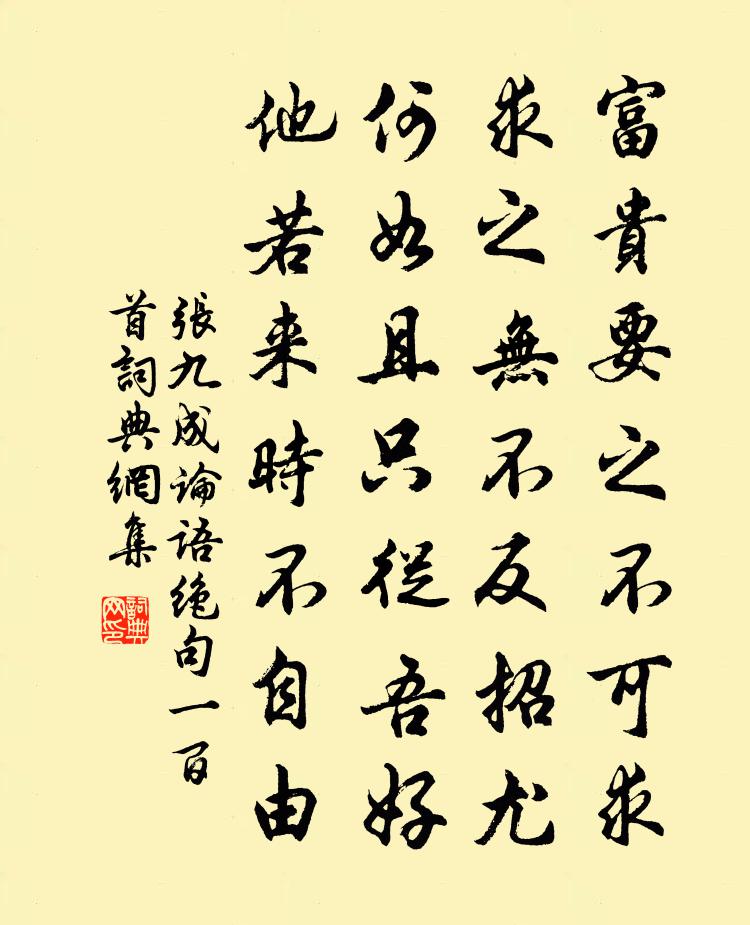 富貴要之不可求
求之無不反招尤
何如且只從吾好
他若来時不自由
張九成論语絶句一百
首詞典網集
詞典网印